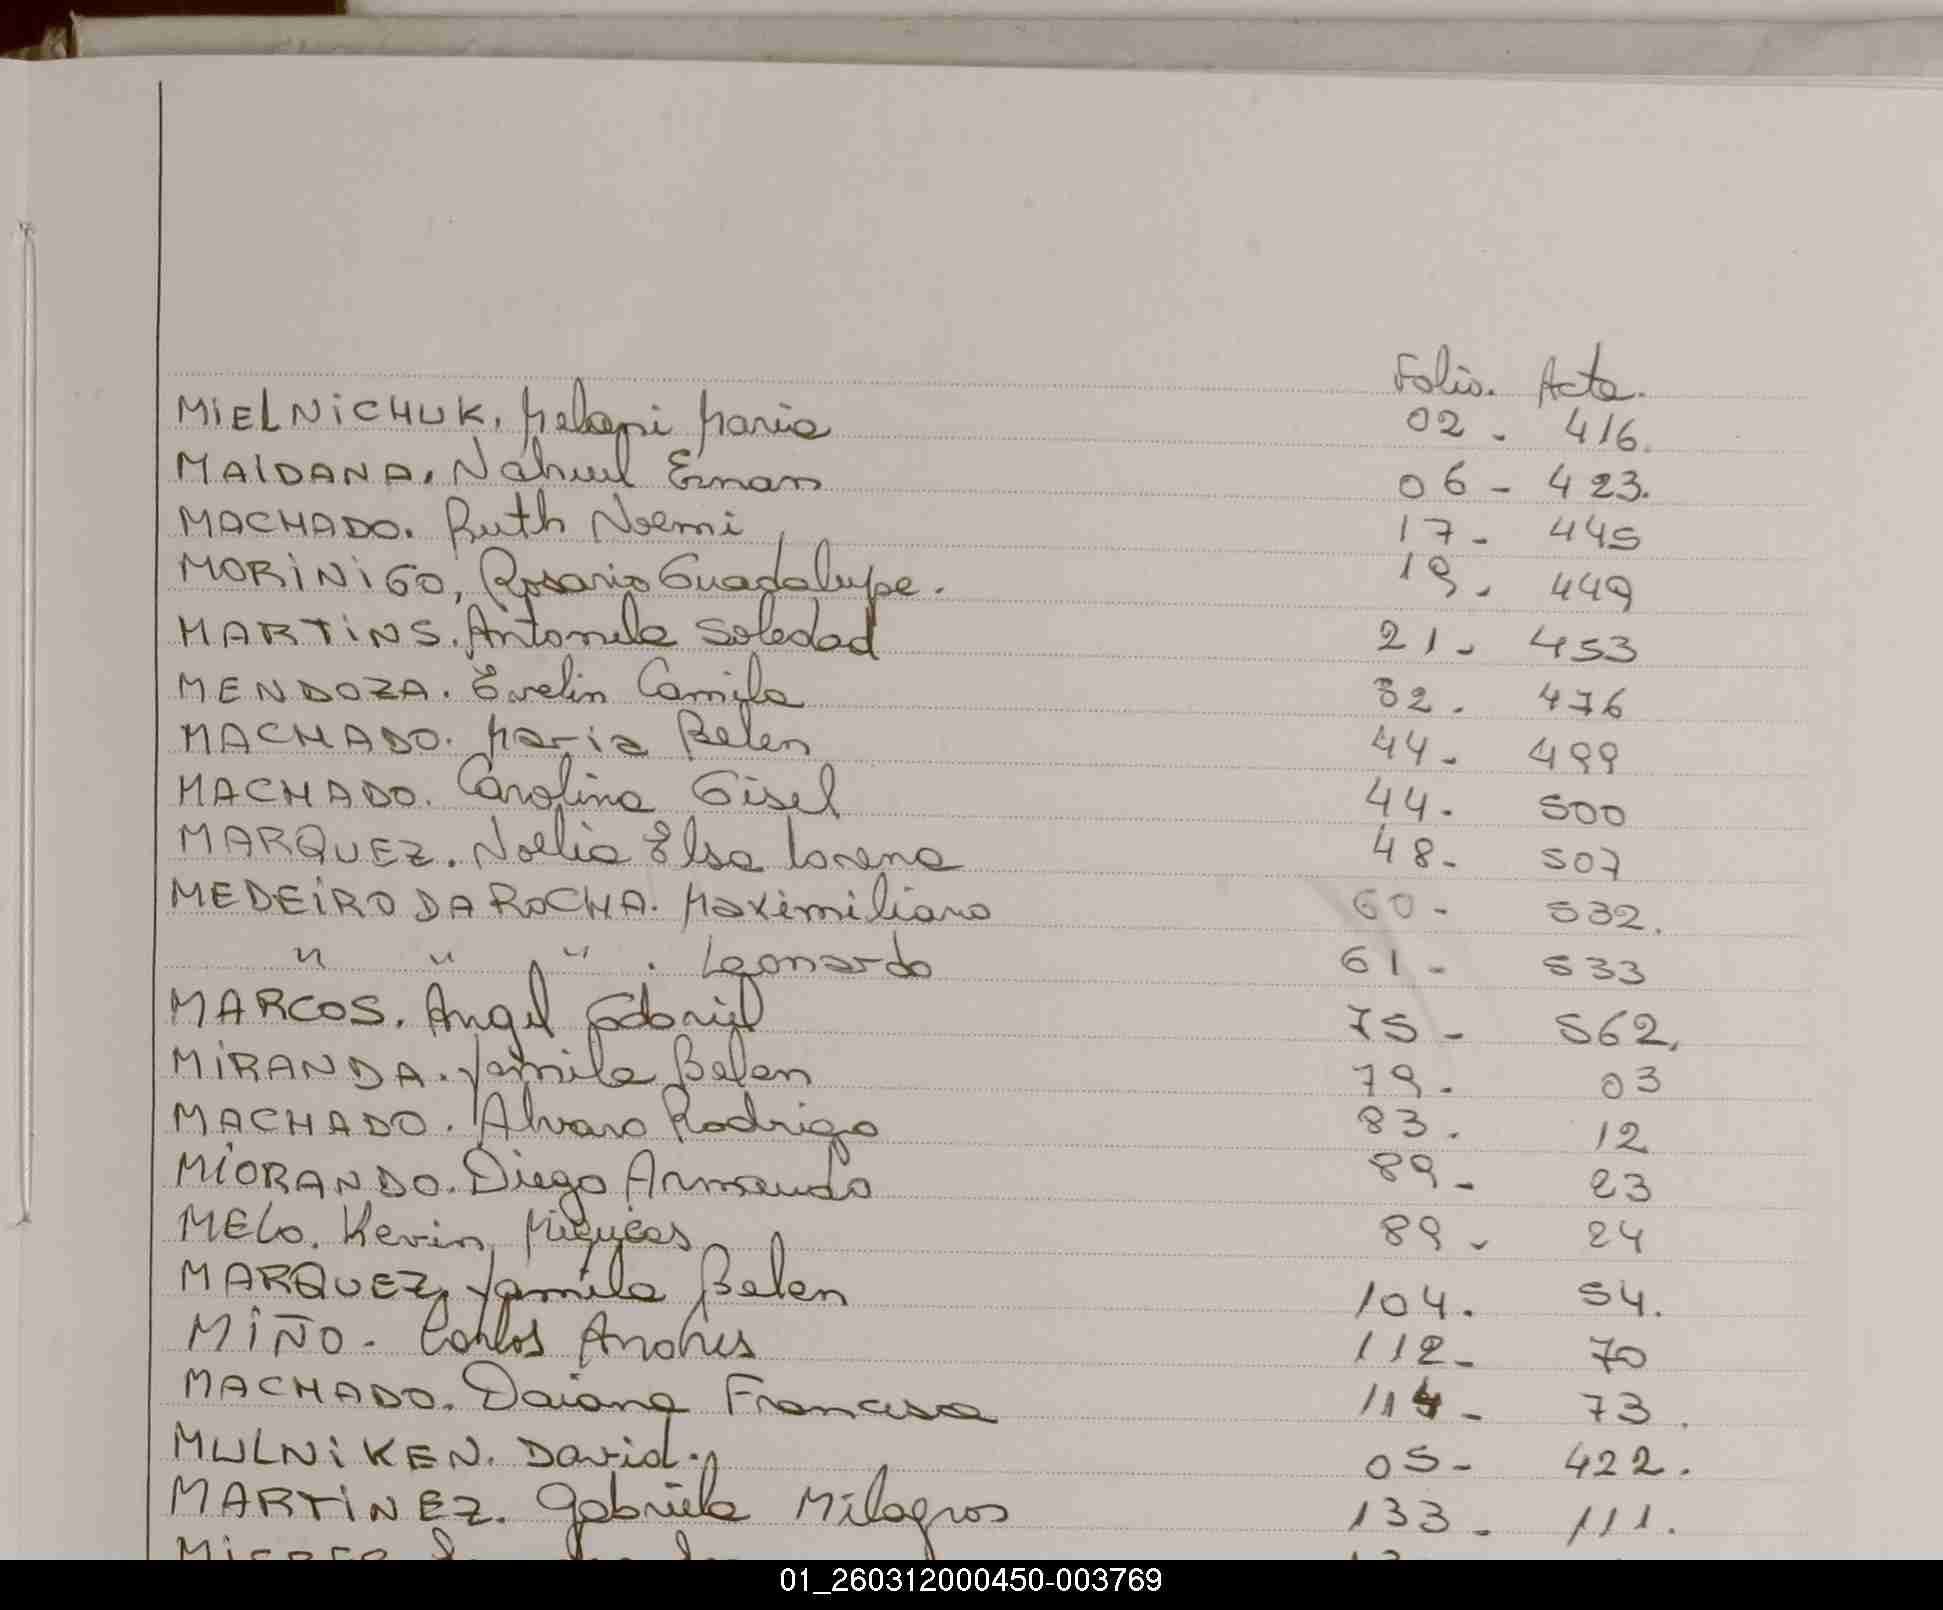 Folio. Acta.
MIELNICHUK. Melani Maria 02 - 416.
MAIDANA. Nahuel Ernan 06 - 423.
MACHADO. Ruth Noemi 17 - 445
MORINIGO, Rosario Guadalupe. 19 - 449
MARTINS. Antonela Soledad 21 - 453
MENDOZA. Evelin Camila 32. 476
MACHADO. Maria Belen 44 - 499
MACHADO. Carolina Gisel 44. 500
MARQUEZ. Noelia Elsa Lorena 48 - 507
MEDEIRO DA ROCHA. Maximiliano 60 - 532.
" " " . Leonardo 61 - 533
MARCOS. Angel Gabriel 75 - 562.
MIRANDA. Yamila Belen 79. 03
MACHADO. Alvaro Rodrigo 83. 12
MIORANDO. Diego Armando 89 - 23
MELO. Kevin 89 - 24
MARQUEZ. Yamila Belen 104. 54.
MIÑO. Carlos Andres 112 - 70
MACHADO. Daiana Francisca 114 - 73.
MULNIKEN. David. 05 - 422.
MARTINEZ. Gabriela Milagros 133 - 111.
01_260312000450-003769